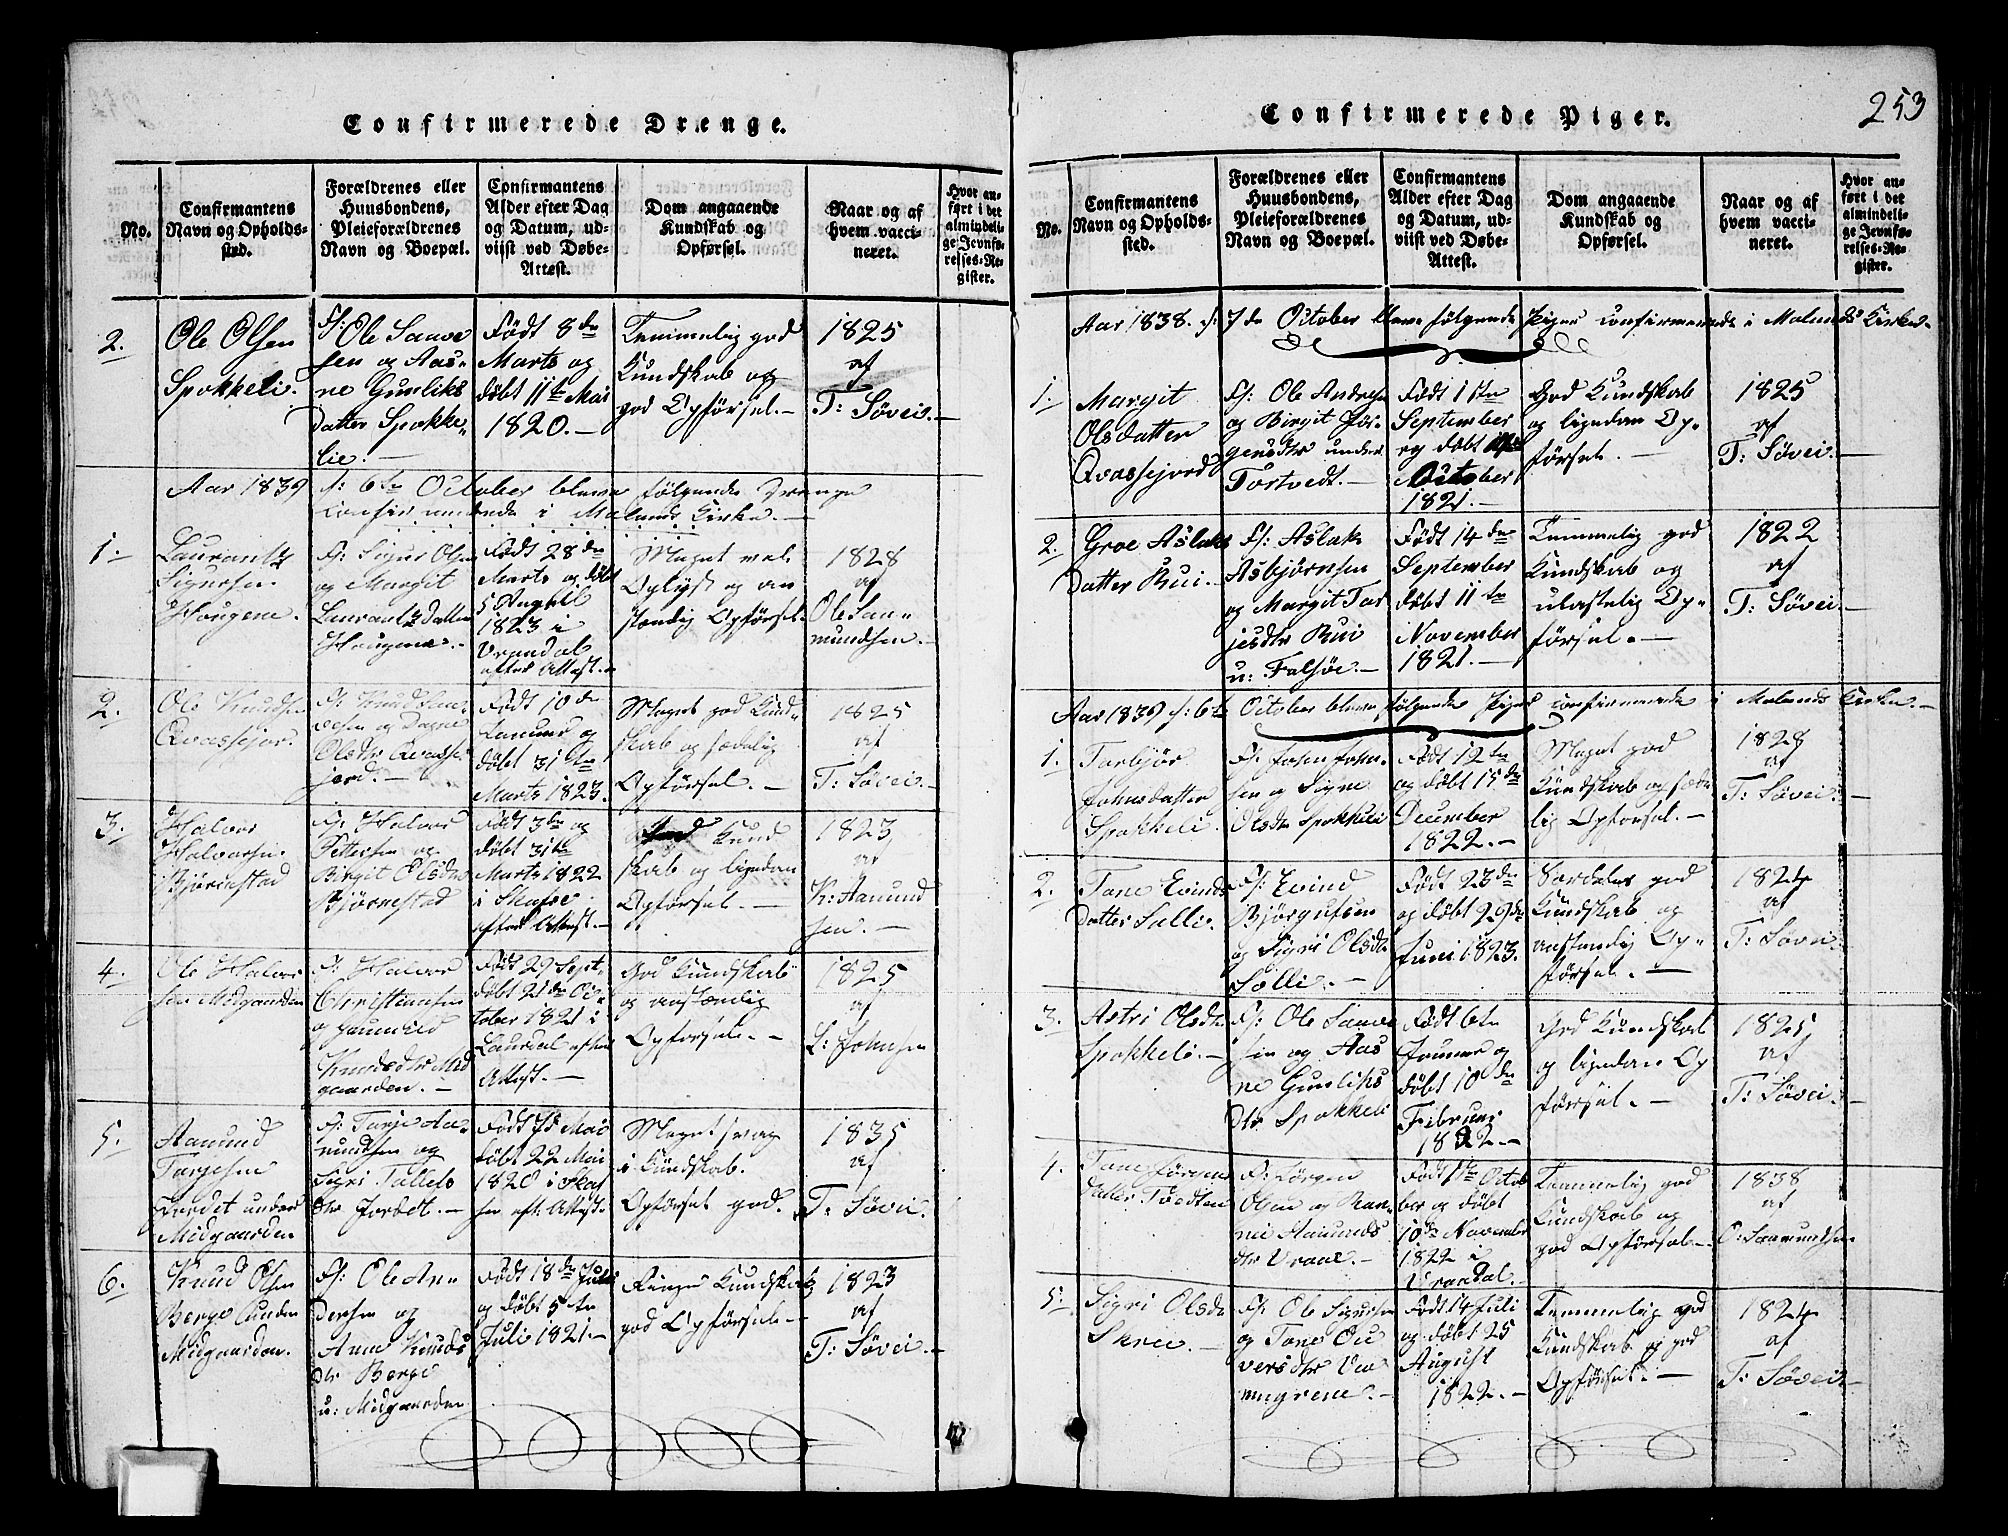 Confirmerede Drenge.
No.
Confirmantens
Navn og Opholds-
sted.
Forældrenes eller
Huusbondens,
Pleieforældrenes
Navn og Boepæl.
Confirmantens
Alder efter Dag
og Datum, ud-
viist ved Døbe-
Attest.
Dom angaaende
Kundskab og
Opførsel.
Naar og af
hvem vacci-
neret.
Hvor an-
ført i det
almindeli-
ge Jevnfø-
relses-Re-
gister.
2.
Ole Olsen
Spokkeli.
F: Ole Saave
sen og Aas-
ne Gunliks
datter Spokke-
lie.
Født 8de
Marts og
døbt 11te Mai
1820.
Temmelig god
Kundskab og
god Opførsel.
1825
af
T: Søvei.
Aar 1839 d: 6te October bleve følgende Drenge
confirmerede i Molands Kirke.
1.
Laurants
Sigursen
Hougene.
F: Sigur Olsen
og Margit
Laurantz Datter
Hougene.
Født 28de
Marts og døbt
5 April
1823 i
Vraadal
efter Attest.
Meget vel
Oplyst og an
stændig Opførsel.
1828
af
Ole Saa-
mundsen
2.
Ole Knudsen
Qvassejor.
F: Knud Saa-
vesen og Dagne
Olsdtr Qvasse
jord.
Født 10de
Januar og
døbt 31te
Marts 1823.
Meget god Kund-
skab og sædelig
Opførsel.
1825
af
T: Søvei.
3.
Halvor
Halvorsen
Bjørnestad
F: Halvor
Pettersen og
Birgit Olsdtr
Bjørnestad
Født 3de og
døbt 31te
Marts 1822
i Skafse
efter Attest.
Kund
skab og ligedan
Opførsel.
1823
af
K: Aamund
sen.
4.
Ole Halvor
sen Midgaarden
F: Halvor
Christiansen
og Gunnild
Knudsdtr Mid
gaarden.
Født 29 Sept-
døbt 21de Oc-
tober 1821 i
Laurdal efter
Attest.
God Kundskab
og anstændig
Opførsel.
1825
af
L: Johnsen
5.
Aamund
Tarjesen
Jordet under
Midgaarden
F: Tarje Aa-
mundsen og
Sigri Tallels
dtr Jordet.
Født 7d Mai
døbt 22 Mai
1820 i Skaf
sen eft. Attest.
Meget svag
i Kundskab.
Opførsel god.
1835
af
T: Søvei.
6.
Knud Olsen
Berge under
Midgaarden.
F: Ole An-
dersen og
Anne Knuds
dtr Berge
u: Midgaarden
Født 18de Juni
og døbt 5te
Juli 1821.
Ringe Kundskab
god Opførsel.
1823
af
T: Søvei.
Confirmerede Piger.
253
No.
Confirmantens
Navn og Opholds-
sted.
Forældrenes eller
Huusbondens,
Pleieforældrenes
Navn og Boepæl.
Confirmantens
Alder efter Dag
og Datum, ud-
viist ved Døbe-
Attest.
Dom angaaende
Kundskab og
Opførsel.
Naar og af
hvem vacci-
neret.
Hvor an-
ført i det
almindeli-
ge Jevnfø-
relses-Re-
gister.
Aar 1838. d: 7de October bleve følgende Piger confirmerede i Molands Kirke.
1.
Margit
Olsdatter
Qvassejord
F: Ole Andersen
og Birgit Jør-
gensdtr under
Tortvedt.
Født 1ste
September
og døbt
October
1821.
God Kundskab
og ligedan Op-
førsel.
1825
af
T: Søvei.
2.
Groe Aslaks
datter Rui.
F: Aslak
Asbjørnsen
og Margit Tar
jesdtr Rui
u: Falsøe.
Født 14de
September
døbt 11te
November
1821.
Temmelig god
Kundskab og
ulastelig Op-
førsel.
1822
af
T: Søvei.
Aar 1839 d: 6te October bleve følgende Piger confirmerede i Molands Kirke.
1.
Torbjør
Johnsdatter
Spokkeli.
F: John John-
sen og Signe
Olsdtr Spokkeli
Født 12te
og døbt 15de
December
1822.
Meget god
Kundskab og sæde
lig Opførsel.
1828
af
T: Søvei.
2.
Tone Evinds
datter Solli.
F: Evind
Bjørgufsen
og Sigri Olsdtr
Solli.
Født 23de
og døbt 29de
Juni 1823.
Særdeles god
Kundskab og
anstændig Op-
førsel.
1824
af
T: Søvei.
3.
Astri Olsdtr
Spokkeli.
F: Ole Saave
sen og Aas
ne Gunliks
dtr Spokkeli
Født 6te
Januar og
døbt 10de
Februar
1822.
God Kundskab
og ligedan Op
førsel.
1825
af
T: Søvei.
4.
Tone Jørgens
datter Tvedten
F: Jørgen
Olsen og Ran-
nei Aamunds
dtr Vraae.
Født 1ste Octo
ber og døbt
10de November
1822 i
Vraadal.
Temmelig god
Kundskab og
god Opførsel.
1838
af
O: Saamundsen
5.
Sigri Olsdtr
Skree.
F: Ole Sigursen
og Tone Ou
versdtr Vaa
mugrene.
Født 14 Juli
og døbt 25
August
1822.
Temmelig god
Kundskab og god
Opførsel.
1824
af
T: Søvei.